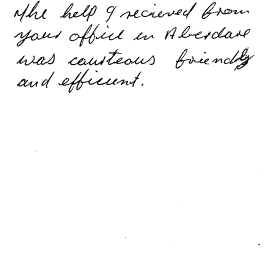 The help I recieved from
your office in Aberdare
was courteous friendly
and efficient.